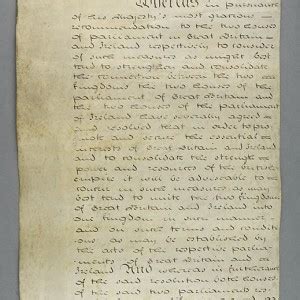 Whereas in pursuance
of his Majesty's most gracious
recommendation to the two houses
of parliament in Great Britain
and Ireland respectively to consider
of such measures as might best
tend to strengthen and consolidate
the connection between the two
kingdoms the two houses of the
parliament of Great Britain and
the two houses of the parliament
of Ireland have severally agreed
and resolved that in order to pro
mote and secure the essential
interests of Great Britain and Ireland
and to consolidate the strength
power and resources of the British
empire it will be adviseable to
concur in such measures as may
best tend to unite the two kingdoms
of Great Britain and Ireland into
one kingdom in such manner
and on such terms and condit
ions as may be established by
the acts of the respective parlia
ments of Great Britain and
Ireland And whereas in furtherance
of the said resolution both houses
of the said two parliaments res